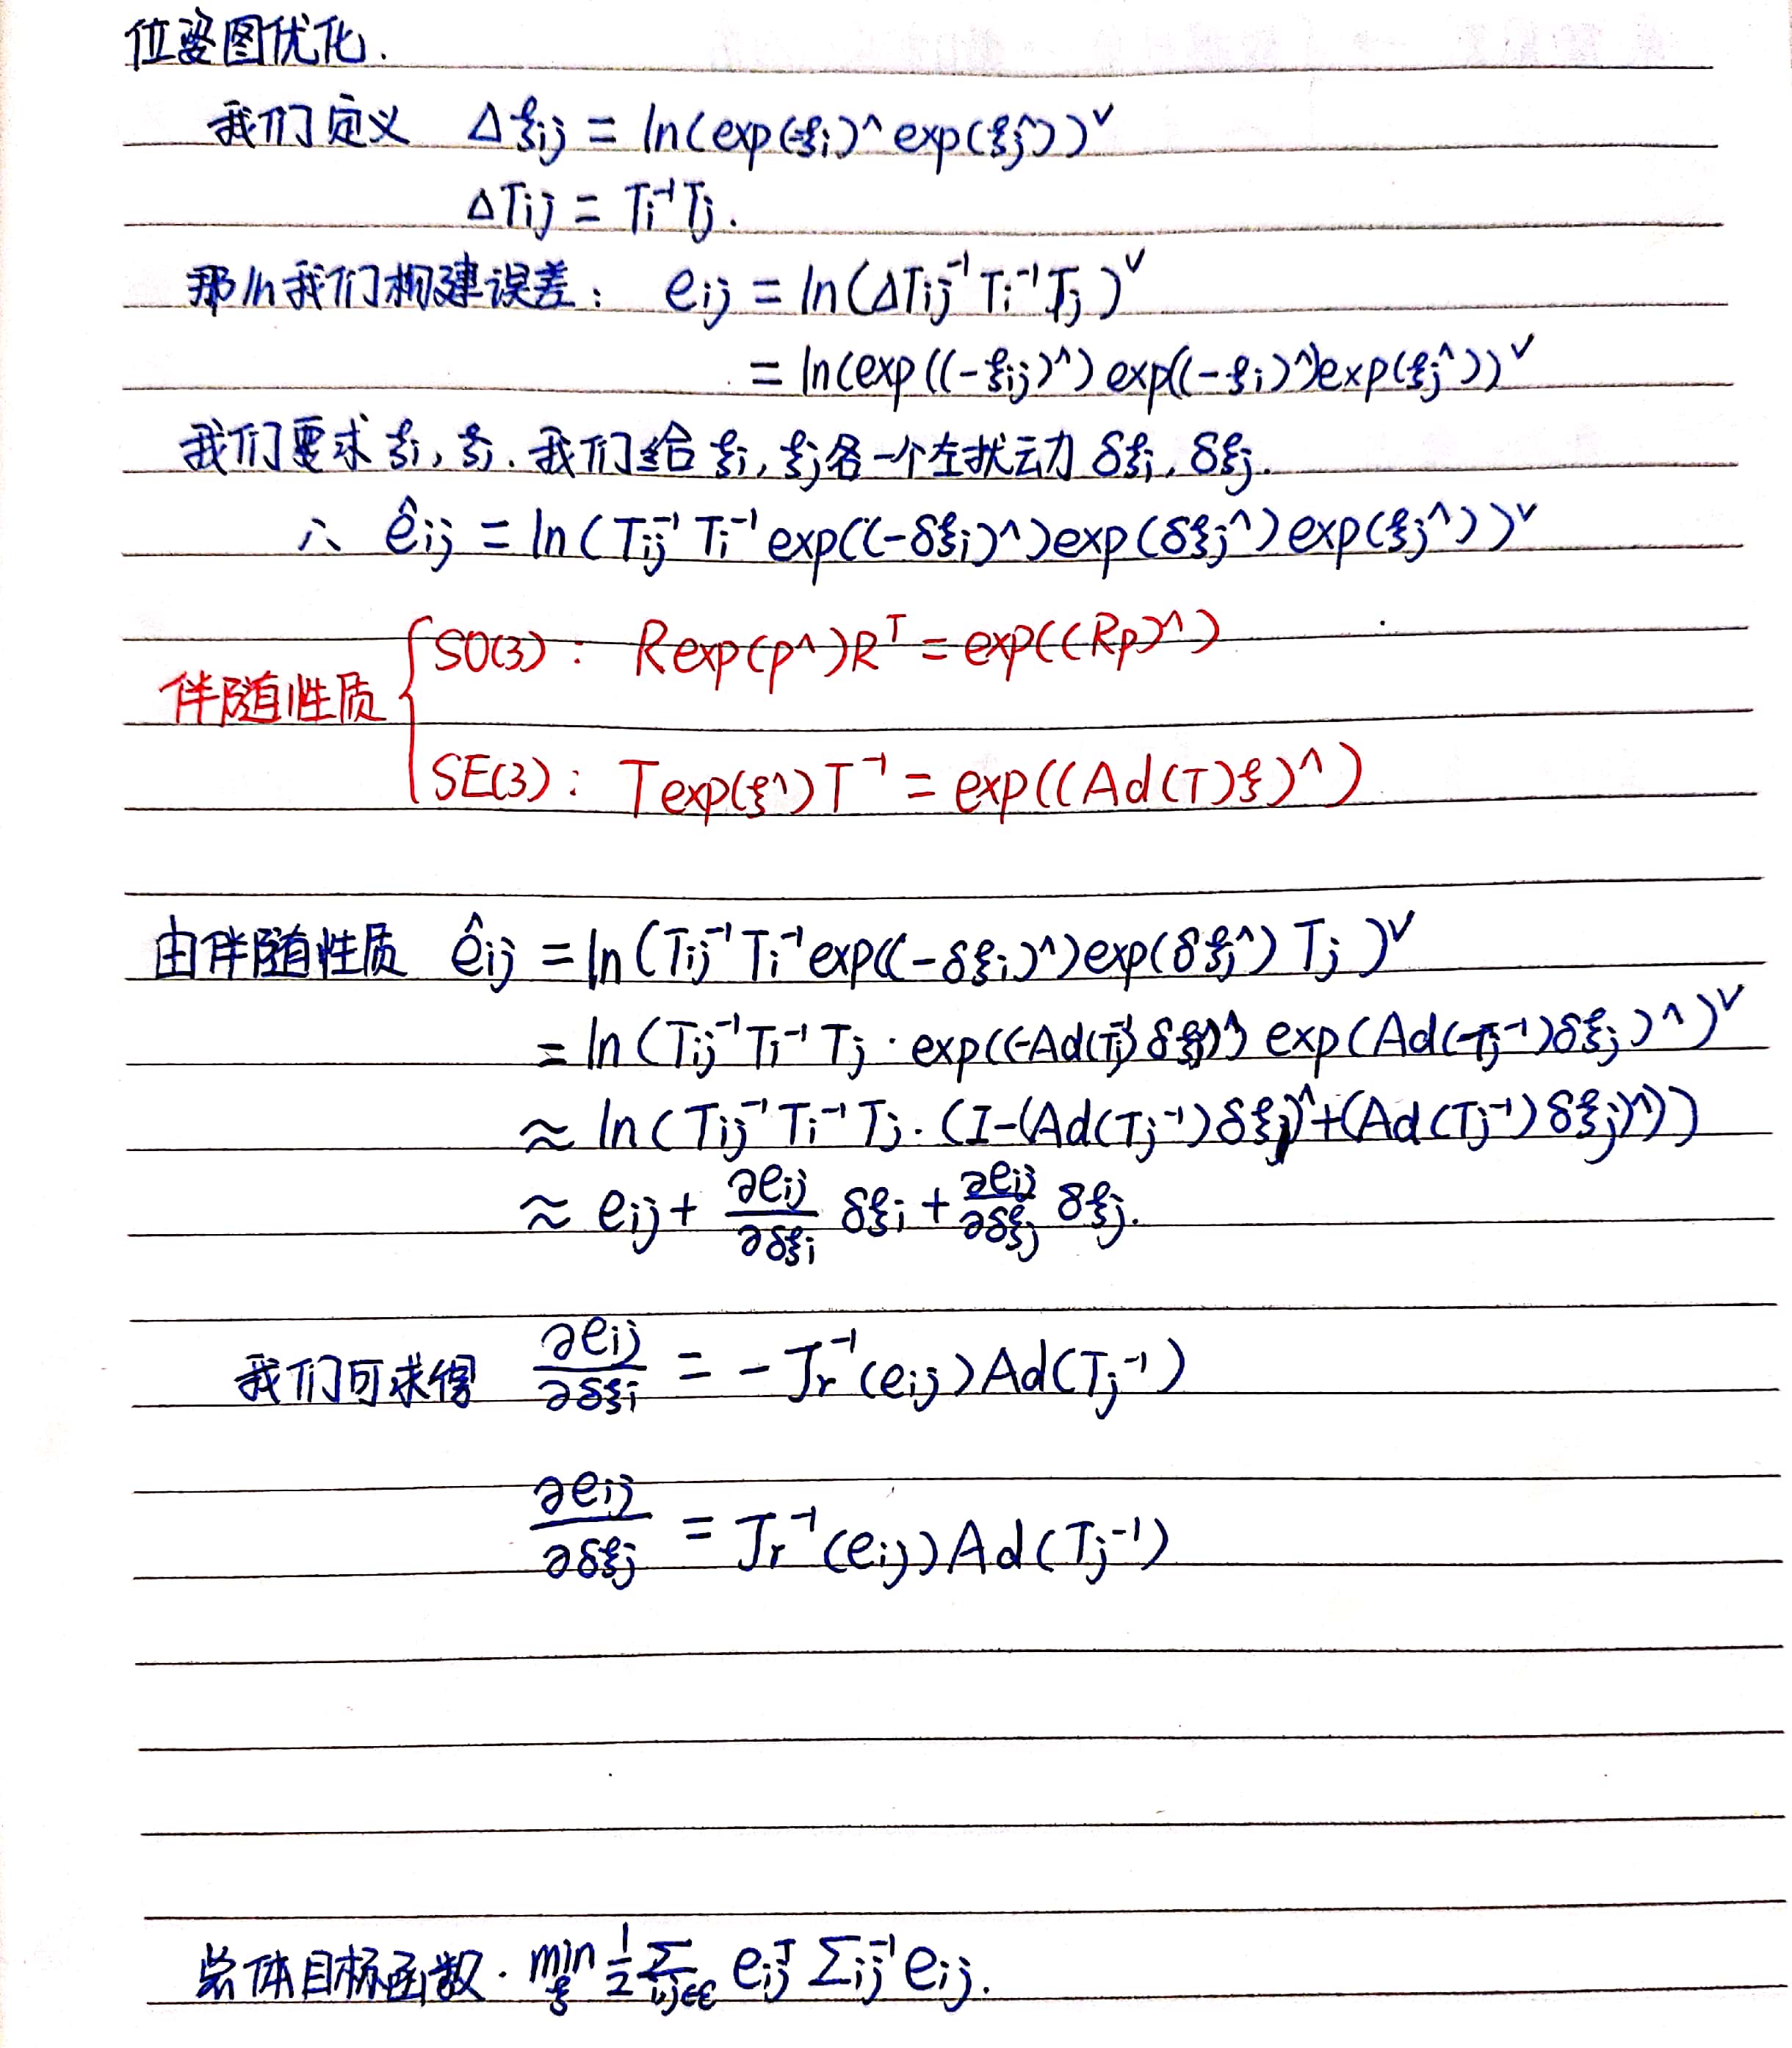 位姿图优化.
我们定义 Δξij = ln(exp(-ξi)^ exp(ξj^))∨
ΔTij = Ti⁻¹Tj.
那么我们构建误差: eij = ln(ΔTij⁻¹Ti⁻¹Tj)∨
= ln(exp((-ξij)^) exp((-ξi)^)exp(ξj^))∨
我们要求 ξi, ξj. 我们给 ξi, ξj各一个左扰动 δξi, δξj.
∴ êij = ln(Tij⁻¹Ti⁻¹exp((-δξi)^)exp(δξj^)exp(ξj^))∨
SO(3): Rexp(p^)Rᵀ = exp((Rp)^)
伴随性质
SE(3): Texp(ξ^)T⁻¹ = exp((Ad(T)ξ)^)
由伴随性质 êij = ln(Tij⁻¹Ti⁻¹exp((-δξi)^)exp(δξj^)Tj)∨
= ln(Tij⁻¹Ti⁻¹Tj · exp((-Ad(Tj⁻¹)δξi)^) exp(Ad(Tj⁻¹)δξj)^)∨
≈ ln(Tij⁻¹Ti⁻¹Tj · (I-(Ad(Tj⁻¹)δξj)^+(Ad(Tj⁻¹)δξj)^))
≈ eij + ∂eij/∂δξi δξi + ∂eij/∂δξj δξj.
我们可求得 ∂eij/∂δξi = -Jr⁻¹(eij)Ad(Tj⁻¹)
∂eij/∂δξj = Jr⁻¹(eij)Ad(Tj⁻¹)
总体目标函数. min ξ 1/2 Σ i,j∈ε eijᵀ Σij⁻¹ eij.